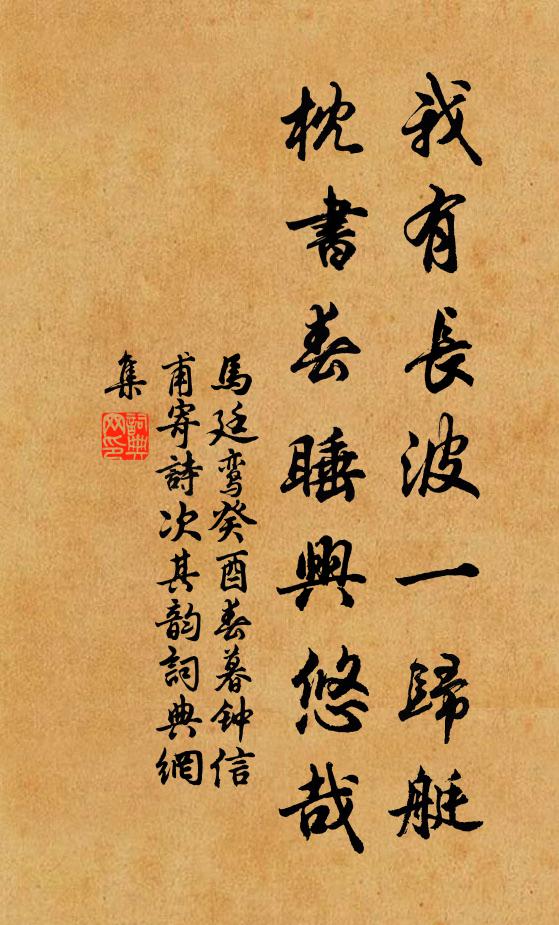 我有長波一歸艇
枕書春睡興悠哉
馬廷鸾癸酉春暮钟信
甫寄詩次其韵詞典網
集
詞典
网印